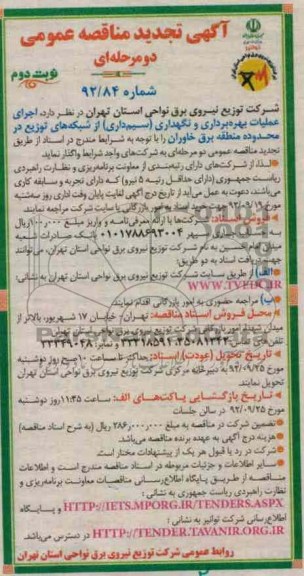 آگهی تجدید مناقصه عمومی
دو مرحله‌ای
نوبت دوم
شماره ۹۲/۸۴
شرکت توزیع نیروی برق نواحی استان تهران در نظر دارد، اجرای
عملیات بهره‌برداری و نگهداری (سیم‌داری) از شبکه‌های توزیع در
محدوده منطقه برق خاوران را با توجه به شرایط مندرج در اسناد از طریق
تجدید مناقصه عمومی دو مرحله‌ای به شرکت‌های واجد شرایط واگذار نماید.
لذا، از شرکت‌های دارای رتبه‌بندی از معاونت برنامه‌ریزی و نظارت راهبردی
ریاست جمهوری (دارای حداقل رتبه ۵ نیرو) که دارای تجربه و سابقه کاری
می‌باشند، دعوت به عمل می‌آید از تاریخ درج آگهی لغایت پایان وقت اداری روز سه‌شنبه
مورخ ۹۲/۰۹/۱۹ جهت خرید اسناد به امور بازرگانی یا سایت شرکت مراجعه نمایند.
فروش اسناد: شرکت‌ها با ارائه معرفی‌نامه و واریز مبلغ ریال
۰۱۰۱۷۸۸۶۹۳۰۰۴ بانک صادرات شعبه
به نام شرکت توزیع نیروی برق نواحی استان تهران، می‌توانند
جهت دریافت اسناد به دو طریق:
الف) از طریق سایت شرکت توزیع نیروی برق نواحی استان تهران به نشانی:
WWW.TVEDC.IR
ب) مراجعه حضوری به امور بازرگانی اقدام نمایند.
محل فروش اسناد مناقصه: تهران - خیابان ۱۷ شهریور، بالاتر از
میدان شهدا، امور بازرگانی شرکت توزیع نیروی برق نواحی استان تهران
تلفن‌های تماس: ۳۵۰۸۱۳۴۴، ۳۳۳۱۸۵۹۱ و نمابر: ۳۳۳۴۹۰۴۸
تاریخ تحویل (عودت) اسناد: حداکثر تا ساعت ۱۰ صبح روز دوشنبه
مورخ ۹۲/۰۹/۲۵ به دبیرخانه مرکزی شرکت توزیع نیروی برق نواحی استان تهران
تحویل نمایند.
تاریخ بازگشایی پاکت‌های الف: ساعت ۱۱:۴۵ روز دوشنبه
مورخ ۹۲/۰۹/۲۵ در سالن جلسات
تضمین شرکت در مناقصه به مبلغ ۲۸۶٫۰۰۰٫۰۰۰ ریال (به شرح اسناد مناقصه)
هزینه درج آگهی به عهده برنده مناقصه می‌باشد.
شرکت در رد یا قبول هر یک از پیشنهادات مختار است.
سایر اطلاعات و جزئیات مربوطه در اسناد مناقصه مندرج است و اطلاعات
مناقصه از طریق پایگاه اطلاع‌رسانی مناقصات معاونت برنامه‌ریزی و
نظارت راهبردی ریاست جمهوری به نشانی:
HTTP://IETS.MPORG.IR/TENDERS.ASPX و پایگاه
اطلاع‌رسانی شرکت توانیر به نشانی:
HTTP://TENDER.TAVANIR.ORG.IR در دسترس می‌باشد.
روابط عمومی شرکت توزیع نیروی برق نواحی استان تهران